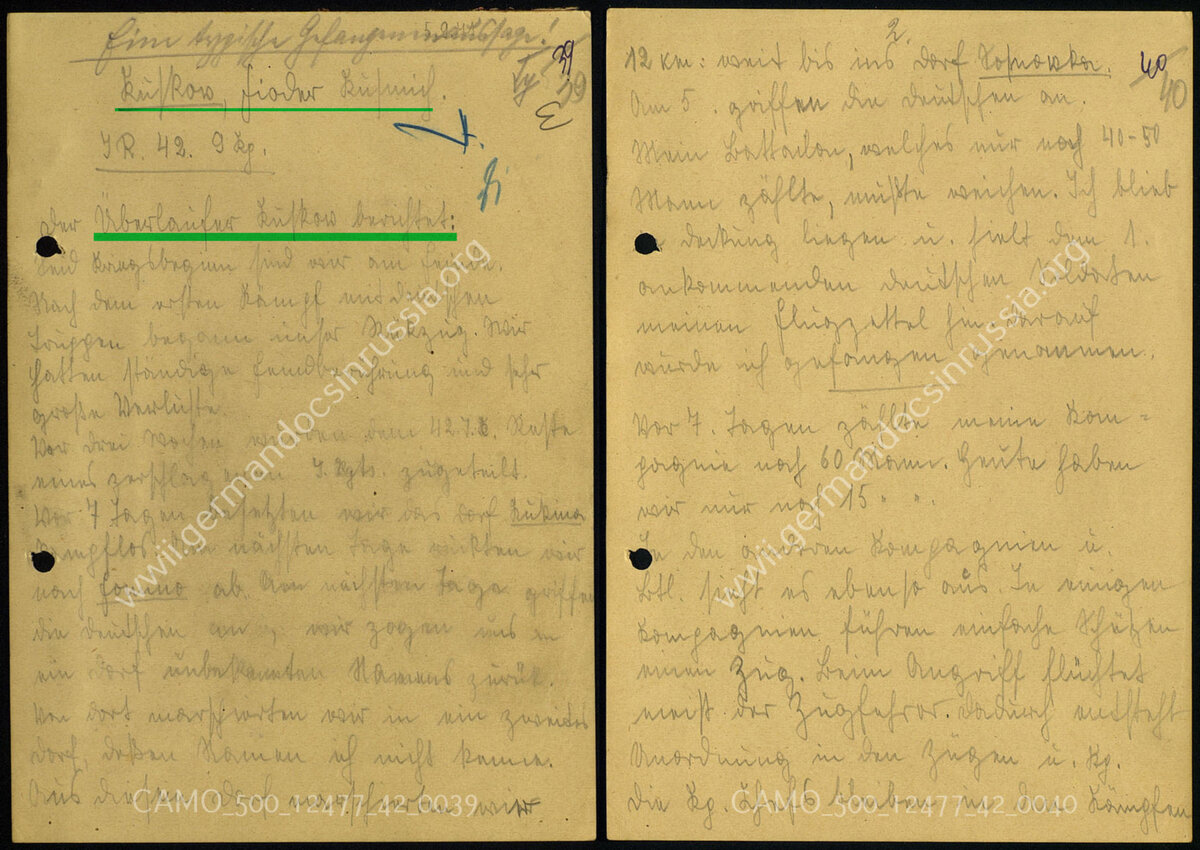 Eine typische Gefangenenaussage!
39
39
Kuskow, Fioder Kusmich.
IR. 42. 9 Kp.
Der Überlaufer Kuskow berichtet:
Seid Kriegsbeginn sind wir am Feinde.
Nach dem ersten Kampf mit deutschen
Truppen begann unser Rückzug. Wir
hatten ständige Feindberührung und sehr
große Verluste.
Vor drei Wochen wurden dem 42. I.R. Reste
eines zerschlagenen I. Rgts. zugeteilt.
Vor 7 Tagen besetzten wir das Dorf
Kampflos. Am nächsten Tage rückten wir
nach Fomino ab. Am nächsten Tage griffen
die Deutschen an, wir zogen uns in
ein Dorf unbekannten Namens zurük.
Von dort marschierten wir in ein zweites
Dorf, deßen Namen ich nicht kenne.
Aus diesem Dorf marschierten wir
CAMO_500_12477_42_0039
www.germandocsinrussia.org
2.
40
40
12 km: weit bis ins Dorf Sosnowka.
Am 5. griffen die Deutschen an.
Mein Battailon, welches nur noch 40-50
Mann zählte, mußte weichen. Ich blieb
in deckung liegen u. hielt dem 1.
ankommenden deutschen Soldaten
meinen Flugzettel hin, darauf
wurde ich gefangen genommen.
Vor 7. Tagen zählte meine Kom=
pagnie noch 60 Mann. Heute haben
wir nur noch 15 " ".
In den anderen Kompagnien u.
Btl. sieht es ebenso aus. In einigen
Kompagnien führen einfache Schützen
einen Zug. Beim Angriff flüchtet
meist der Zugfehrer. Dadurch entsteht
Unordnung in den Zügen u. Kp.
Die Kp. Chefs bleiben in den Kämpfen
CAMO_500_12477_42_0040
www.germandocsinrussia.org